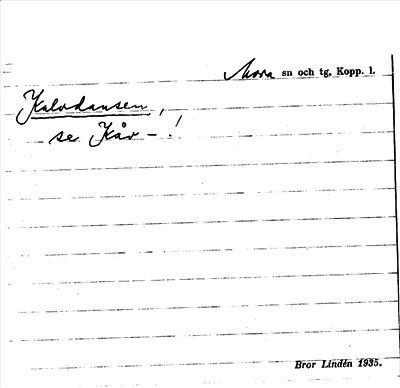 Mora sn och tg, Kopp. l.
Kalvdansen,
se Kår - !
Bror Lindén 1935.